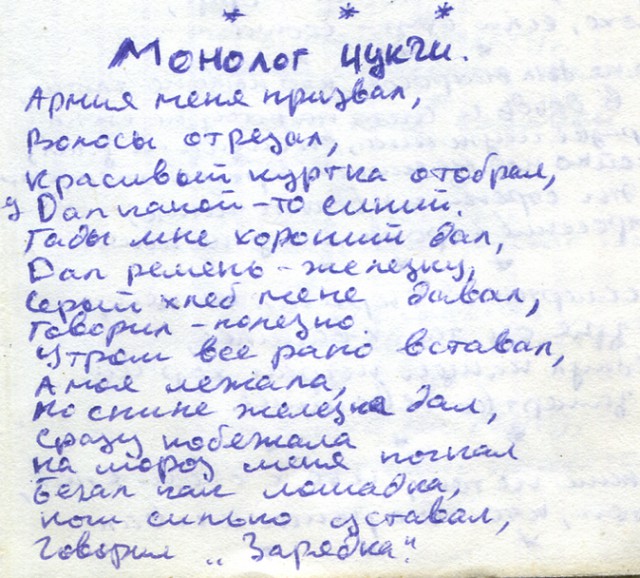 * * *
Монолог чукчи.
Армия меня призвал,
Волосы отрезал,
Красивый куртка отобрал,
Дал какой-то синий.
Гады мне хороший дал,
Дал ремень - железку,
Серый хлеб мене давал,
Говорил - полезно.
Утром все рано вставал,
А моя лежала,
По спине железка дал,
Сразу побежала
На мороз меня погнал
Бегал как лошадка,
Кот сильно уставал,
Говорил „Зарядка".